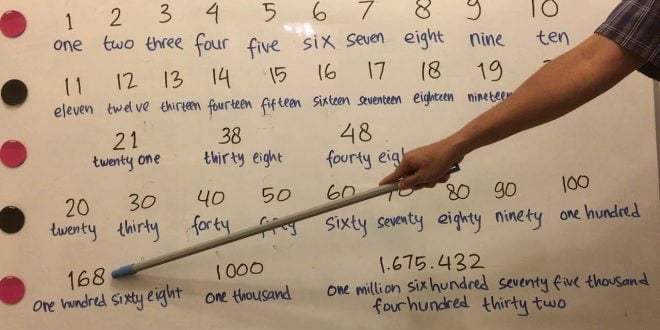 1 2 3 4 5 6 7 8 9 10
one two three four five six seven eight nine ten
11 12 13 14 15 16 17 18 19
eleven twelve thirteen fourteen fifteen sixteen seventeen eighteen nineteen
21 38 48
twenty one thirty eight fourty eig
20 30 40 50 60 70 80 90 100
twenty thirty forty sixty seventy eighty ninety one hundred
168 1000 1.675.432
one hundred sixty eight one thousand one million six hundred seventy five thousand
four hundred thirty two